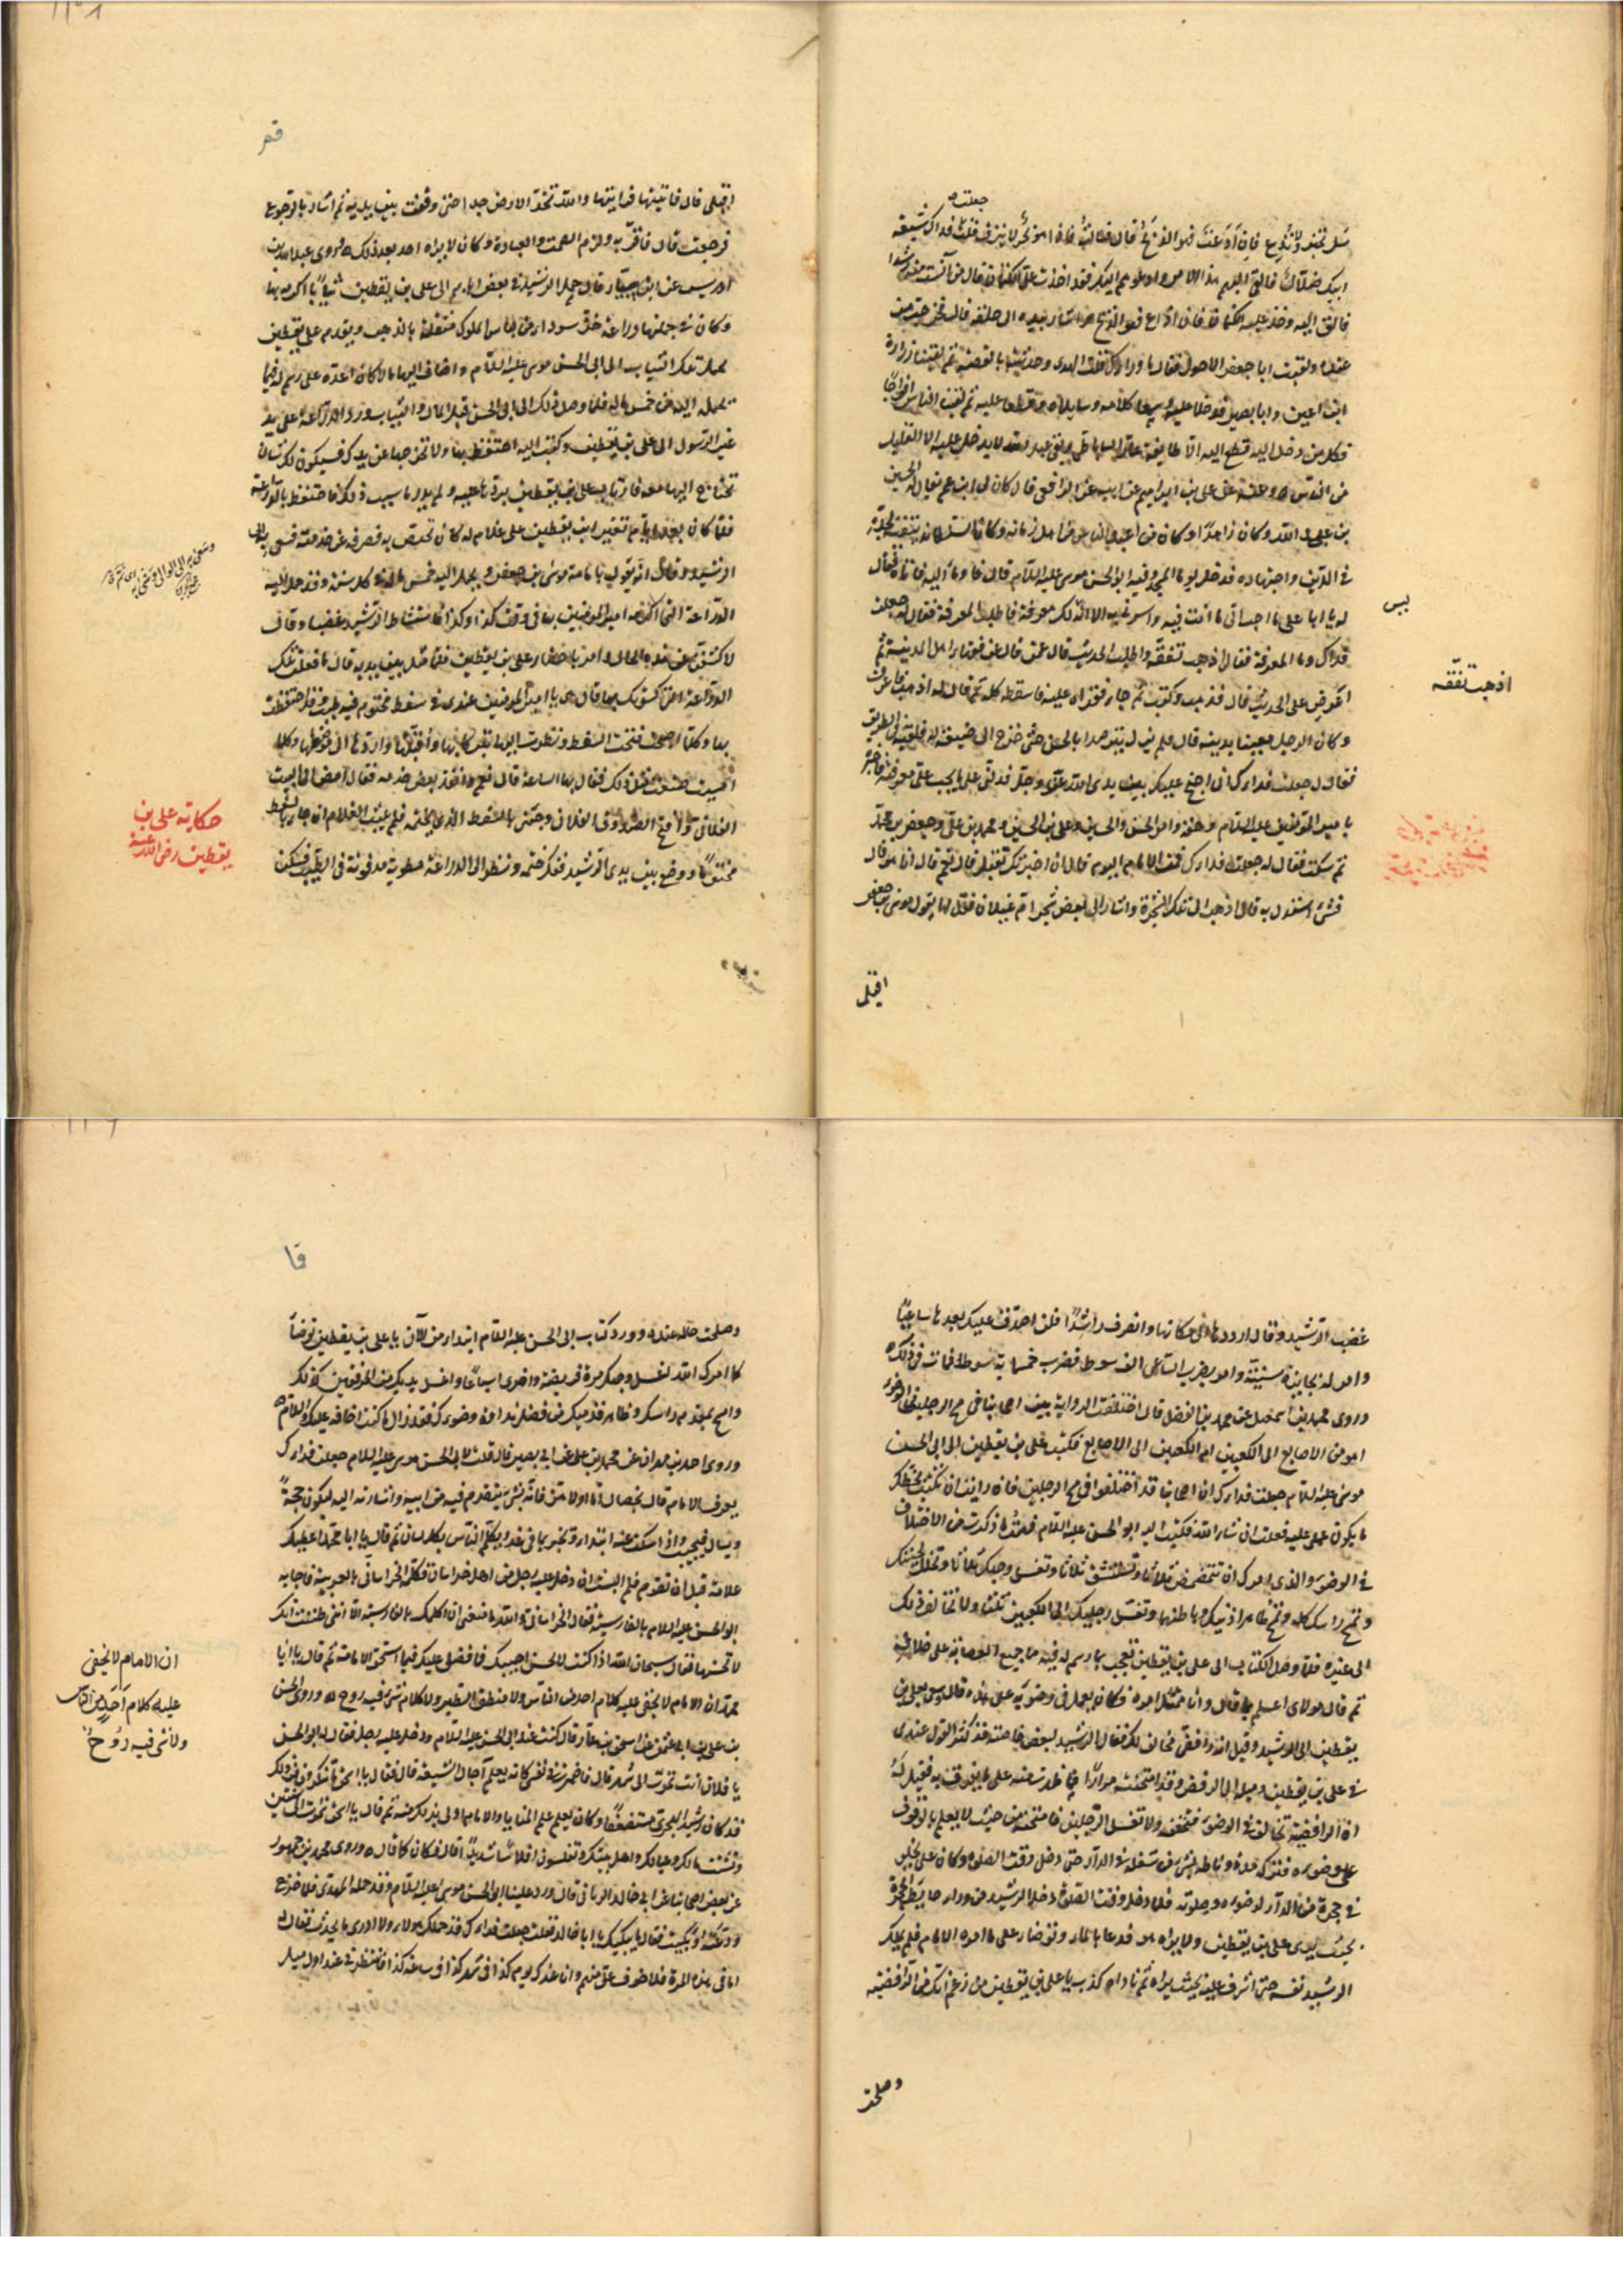 جعلت
سل تخبر ولا تذع فان اذعت فهو الذبح قال فسالته فاذا هو بحر لا ينزف فقلت فداك شيعة
ابيك ضلال فالقى اليهم هذا الامر وادعوهم اليك فقد اخذت على الكتمان قال من آنست منهم رشدا
فالق اليه وخذ عليه الكتمان فان اذاع فهو الذبح واشار بيده الى حلقه قال فخرجت من
عنده ولقيت ابا جعفر الاحول فقال ما وراك قلت الهدى وحدثته بالقصة ثم لقينا زرارة
ابن اعين وابا بصير فدخلا عليه وسمعا كلامه وسايلاه وقطعا عليه ثم لقينا الناس افواجا
فكل من دخل اليه قطع اليه الا طايفة عمار الساباطى وبقى عبد الله لا يدخل عليه الا القليل
من الناس وعنه عن على بن ابراهيم عن ابيه عن الرافعى قال كان لى ابن عم يقال له الحسن
بن على عبد الله وكان زاهدا وكان من اعبد الناس من اهل زمانه وكان السلطان يتقيه لجده
فى الدين واجتهاده فدخل يوما المسجد وفيه ابو الحسن موسى عليه السلام قال فاومأ اليه فاتاه فقال
له يا ابا على ما احب الى ما انت فيه واسرنى به الا انه ليس لك معرفة فاطلب المعرفة فقال له جعلت
فداك وما المعرفة فقال اذهب تفقه واطلب الحديث قال عمن قال عن فقهاء اهل المدينة ثم
اعرض على الحديث قال فذهب وكتب ثم جاء فقراه عليه فاسقطه كله ثم قال له اذهب فاعرف
وكان الرجل معنيا بدينه قال فلم يزل يترصد ابا الحسن حتى خرج الى ضيعة له فلقيه فى الطريق
فقال له جعلت فداك انى احتج عليك بين يدى الله عز وجل فدلنى على ما يجب على معرفته فاخبره
بامير المؤمنين عليه السلام وحقه وامر الحسن والحسين وعلى بن الحسين ومحمد بن على وجعفر بن محمد
ثم سكت فقال له جعلت فداك فمن الامام اليوم قال ان اخبرتك تقبل قال نعم قال انا هو قال
فشىء استدل به قال اذهب الى تلك الشجرة واشار الى بعض شجر ام غيلان فقل لها يقول موسى بن جعفر
اقبلى
ليس
اذهب تفقه
قم
اقبلى قال فاتيتها فرايتها والله تخد الارض خدا حتى وقفت بين يديه ثم اشار بالرجوع
فرجعت قال فاقر به ولزم الصمت والعبادة وكان لا يراه احد بعد ذلك وروى عبد الله بن
ادريس عن ابن سنان قال حمل الرشيد فى بعض الايام الى على بن يقطين ثيابا اكرمه بها
وكان فى جملتها دراعة خز سوداء من لباس الملوك مثقلة بالذهب وتقدم على بن يقطين
بحمل تلك الثياب الى ابى الحسن موسى عليه السلام واضاف اليها مالا كان اعده على رسم له فيما
يحمله اليه من خمس ماله فلما وصل ذلك الى ابى الحسن قبل المال والثياب ورد الدراعة على يد
غير الرسول الى على بن يقطين وكتب اليه احتفظ بها ولا تخرجها عن يدك فسيكون لك شان
تحتاج اليها معه فارتاب على بن يقطين بردها عليه ولم يدر ما سبب ذلك فاحتفظ بالدراعة
فلما كان بعد ايام تغير ابن يقطين على غلام له كان يختص به فصرفه عن خدمته فسعى به الى
الرشيد وقال انه يقول بامامة موسى بن جعفر ويحمل اليه خمس ماله فى كل سنة وقد حمل اليه
الدراعة التى اكرمه امير المؤمنين بها فى وقت كذا وكذا فاستشاط الرشيد غضبا وقال
لاكشفن عن هذه الحال وامر باحضار على بن يقطين فلما مثل بين يديه قال ما فعلت تلك
الدراعة التى كسوتك بها قال هى يا امير المؤمنين عندى فى سفط مختوم فيه طيب قد احتفظت
بها وكلما اصبحت فتحت السفط ونظرت اليها تبركا بها واقبلها واردها الى موضعها وكلما
امسيت صنعت مثل ذلك فقال بها الساعة قال نعم وانفذ بعض خدمه فقال امض الى البيت
الفلانى وافتح الصندوق الفلانى وجئنى بالسفط الذى بختمه فلم يلبث الغلام ان جاء بالسفط
مختوما ووضع بين يدى الرشيد ففك ختمه ونظر الى الدراعة مطوية مدفونة فى الطيب فسكن
حكاية على بن
يقطين رضى الله عنه
غضب الرشيد وقال ارددها الى مكانها وانصرف راشدا فلن اصدق عليك بعدها ساعيا
وامر له بجايزة سنية وامر بضرب الساعى الف سوط فضرب خمسماية سوط فمات فى ذلك
وروى محمد بن اسمعيل عن محمد بن الفضل قال اختلفت الرواية بين اصحابنا فى مسح الرجلين فى الوضوء
اهو من الاصابع الى الكعبين ام الكعبين الى الاصابع فكتب على بن يقطين الى ابى الحسن
موسى عليه السلام جعلت فداك ان اصحابنا قد اختلفوا فى مسح الرجلين فان رايت ان تكتب بخطك
ما يكون عملى عليه فعلت ان شاء الله فكتب اليه ابو الحسن عليه السلام فهمت ما ذكرت من الاختلاف
فى الوضوء والذى امرك ان تتمضمض ثلاثا وتستنشق ثلاثا وتغسل وجهك ثلاثا وتخلل لحيتك
وتمسح راسك كله وتمسح ظاهر اذنيك وباطنهما وتغسل رجليك الى الكعبين ثلثا ولا تخالف ذلك
الى غيره فلما وصل الكتاب الى على بن يقطين تعجب بما رسم له فيه مما جميع العصابة على خلافه
ثم قال مولاى اعلم بما قال وانا ممتثل امره فكان يعمل فى وضوئه على هذه قال وسعى بعلى بن
يقطين الى الرشيد وقيل انه رافضى مخالف لك فقال الرشيد لبعض خاصته قد كثر القول عندى
فى على بن يقطين وميله الى الرفض وقد امتحنته مرارا فما ظهرت منه على ما يقرف به فقيل له
ان الرافضة تخالف فى الوضوء فتخففه ولا تغسل الرجلين فامتحنه من حيث لا يعلم بالوقوف
على وضوءه فتركه مدة وناطه بشىء من شغله فى الدار حتى دخل وقت الصلوة وكان على يخلو
فى حجرة من الدار لوضوءه وصلوته فلما دخل وقت الصلوة دخل الرشيد من وراء حايط الحجرة
بحيث يرى على بن يقطين ولا يراه هو فدعا بالماء وتوضأ على ما امره الامام فلم يملك
الرشيد نفسه حتى اشرف عليه بحيث يراه ثم ناداه كذب يا على بن يقطين من زعم انك من الرافضة
وصلحت
قا
وصلحت حاله عنده وورد كتاب ابى الحسن عليه السلام ابتداء من الآن يا على بن يقطين توضأ
كما امرك الله تغسل وجهك مرة فريضة واخرى اسباغا واغسل يديك من المرفقين كذلك
وامسح بمقدم راسك وظاهر قدميك من فضل نداوة وضوءك فقد زال ما كنت اخافه عليك والسلام
وروى احمد بن مهران عن محمد بن على عن ابى بصير قال قلت لابى الحسن موسى عليه السلام جعلت فداك
بم يعرف الامام قال بخصال اما اولاهن فانه بشىء يتقدم فيه من ابيه واشارته اليه ليكون حجة
ويسال فيجيب واذا سكت عنه ابتداء ويخبر بما فى غد ويكلم الناس بكل لسان ثم قال يا ابا محمد اعطيك
علامة قبل ان تقوم فلم البث ان دخل عليه رجل من اهل خراسان فكلمه الخراسانى بالعربية فاجابه
ابو الحسن عليه السلام بالفارسية فقال الخراسانى والله ما منعنى ان اكلمك بالفارسية الا اننى ظننت انك
لا تحسنها فقال سبحان الله اذا كنت لا احسن اجيبك فما فضلى عليك فيما استحق الامامة ثم قال يا ابا
محمد ان الامام لا يخفى عليه كلام احد من الناس ولا منطق الطير ولا كلام شىء فيه روح وروى الحسن
بن على بن ابى عثمن عن اسحق بن عمار قال كنت عند ابى الحسن عليه السلام ودخل عليه رجل فقال له ابو الحسن
يا فلان انت تموت الى شهر قال فاضمرت فى نفسى كانه يعلم آجال الشيعة قال فقال يا اسحق ما تنكرون من ذلك
قد كان رشيد الهجرى مستضعفا وكان يعلم علم المنايا والامام اولى بذلك منه ثم قال يا اسحق تموت الى سنتين
وتشتت مالك وعيالك واهل بيتك وتفلسون افلاسا شديدا قال فكان كما قال وروى محمد بن جمهور
عن بعض اصحابنا عن ابى خالد الزبالى قال ورد علينا ابو الحسن موسى عليه السلام وقد حمله المهدى فلما خرج
ودعته وبكيت فقال ما يبكيك يا ابا خالد فقلت جعلت فداك قد حملك هولاء ولا ادرى ما يحدث فقال
اما فى هذه المرة فلا خوف على منهم وانا عندك يوم كذا فى شهر كذا فى ساعة كذا فانتظرنى عند اول ميل
ان الامام لا يخفى
عليه كلام احد من الناس
ولا شى فيه روح